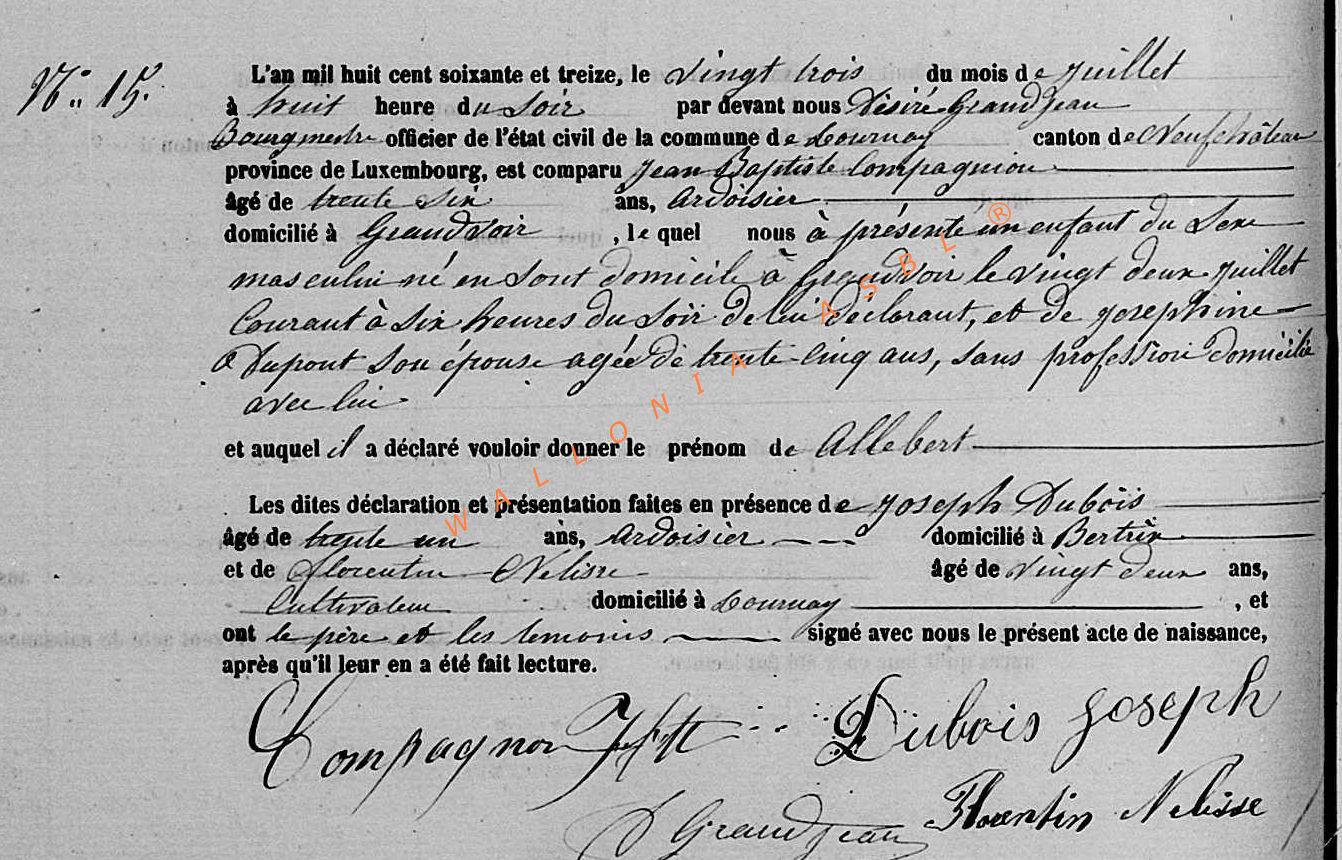 N.° 15.
L'an mil huit cent soixante et treize, le vingt trois du mois de juillet
à huit heure du soir par devant nous Désiré Grandjean
Bourgmestre officier de l'état civil de la commune de Tournay canton de Neufchâteau
province de Luxembourg, est comparu Jean Baptiste Compagnion
âgé de trente six ans, ardoisier
domicilié à Grandvoir, lequel nous à présenté un enfant du sexe
masculin né en sont domicile à Grandvoir le vingt deux juillet
Courant à six heures du soir de lui déclarant, et de josephine
Dupont son épouse agée de trente cinq ans, sans profession domicilié
avec lui
et auquel il a déclaré vouloir donner le prénom de Allebert
Les dites déclaration et présentation faites en présence de Joseph Dubois
âgé de trente un ans, ardoisier domicilié à Bertrix
et de Florentin Nelisse âgé de vingt deux ans,
Cultivateur domicilié à Tournay, et
ont le père et les temoins signé avec nous le présent acte de naissance,
après qu'il leur en a été fait lecture.
Compagnon JBpt Dubois Joseph
D Grandjean Florentin Nelisse
WALLONIA ASBL ®